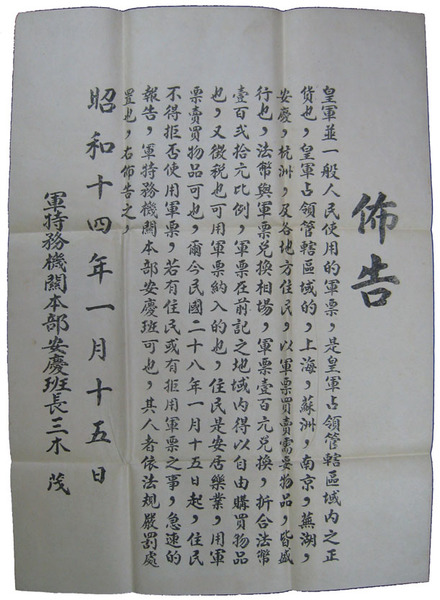 佈告
皇軍並一般人民使用的軍票，是皇軍占領管轄區域內之正
貨也，皇軍占領管轄區域的，上海，蘇洲，南京，蕪湖，
安慶，杭洲，及各地方住民，以軍票買賣需要物品，皆盛
行也，法幣與軍票兌換相場，軍票壹百元兌換，折合法幣
壹百弍拾元比例，軍票在前記之地域內得以自由購買物品
也，又徵稅也可用軍票納入的也，住民是安居樂業，用軍
票賣買物品可也，爾今民國二十八年一月十五日起，住民
不得拒否使用軍票，若有住民或有拒用軍票之事，急速的
報告，軍特務機關本部安慶班可也，其人者依法規嚴罰處
置也，右佈告之，
昭和十四年一月十五日
軍特務機關本部安慶班長三木 茂